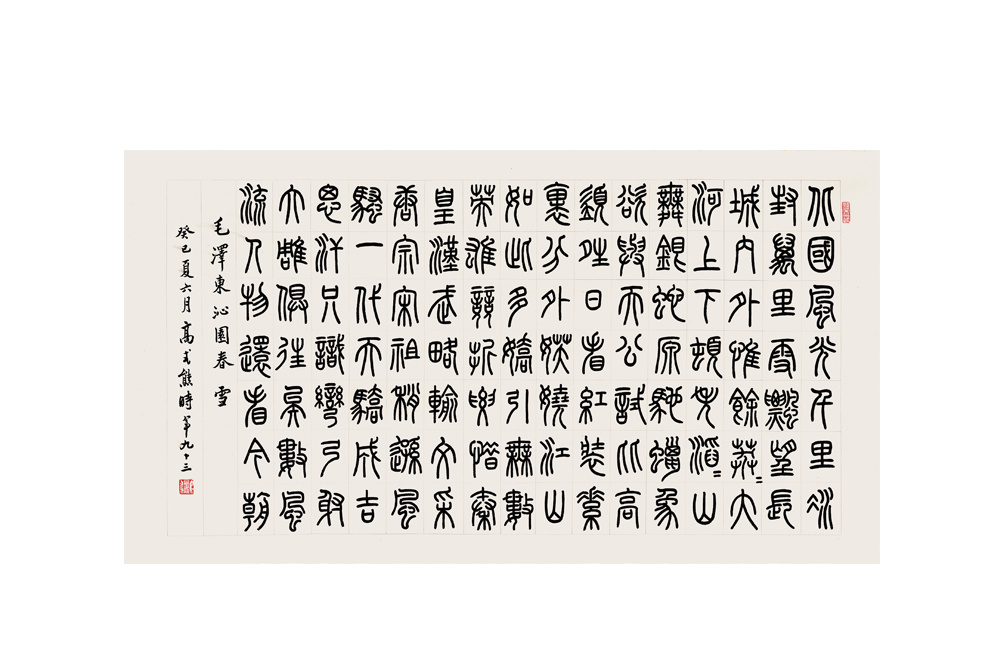 北國風光千里冰
封萬里雪飄望長
城內外惟餘莽=大
河上下頓失滔=山
舞銀蛇原馳蠟象
欲與天公試比高
須晴日看紅裝素
裹分外妖嬈江山
如此多嬌引無數
英雄競折腰惜秦
皇漢武略輸文采
唐宗宋祖稍遜風
騷一代天驕成吉
思汗只識彎弓射
大雕俱往矣數風
流人物還看今朝
毛澤東沁園春雪
癸巳夏六月高式熊時年九十三